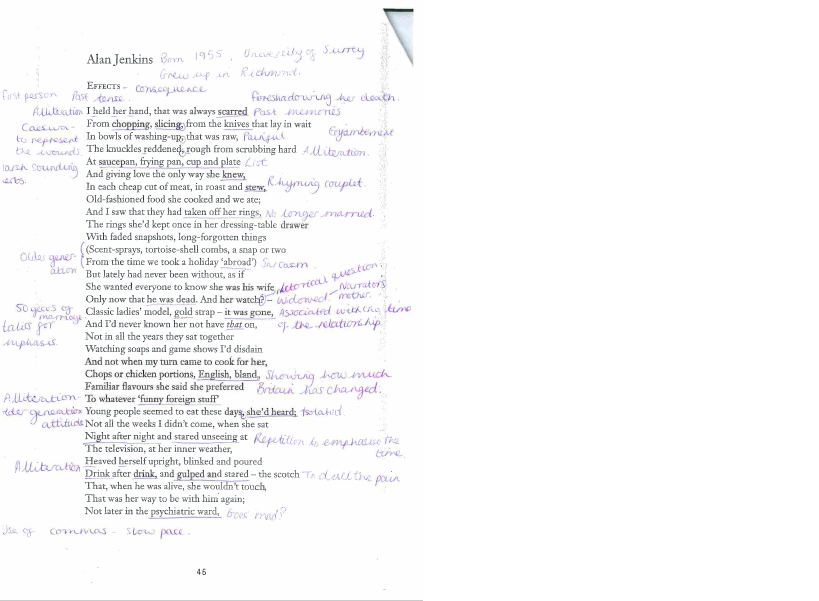 Alan Jenkins Born 1955. University of Surrey
Grew up in Richmond.
EFFECTS - consequence
First person Past tense. foreshadowing her death.
Alliteration I held her hand, that was always scarred Past memories
From chopping, slicing, from the knives that lay in wait
Caesura- to represent the wounds
In bowls of washing-up, that was raw, Painful Enjambement
The knuckles reddened, rough from scrubbing hard Alliteration.
harsh sounding verbs.
At saucepan, frying pan, cup and plate List
And giving love the only way she knew,
In each cheap cut of meat, in roast and stew, Rhyming couplet.
Old-fashioned food she cooked and we ate;
And I saw that they had taken off her rings, No longer married.
The rings she'd kept once in her dressing-table drawer
With faded snapshots, long-forgotten things
(Scent-sprays, tortoise-shell combs, a snap or two
Older generation
From the time we took a holiday 'abroad') Sarcasm.
But lately had never been without, as if
She wanted everyone to know she was his wife rhetorical question.
Only now that he was dead. And her watch? – Widowed Narrators mother.
50 years of marriage
Classic ladies' model, gold strap – it was gone, Associated with the time of the relationship
And I'd never known her not have that on,
Italics for emphasis.
Not in all the years they sat together
Watching soaps and game shows I'd disdain
And not when my turn came to cook for her,
Chops or chicken portions, English, bland, Showing how much Britain has changed.
Familiar flavours she said she preferred
Alliteration- To whatever 'funny foreign stuff'
older generation attitude
Young people seemed to eat these days, she'd heard; Isolated.
Not all the weeks I didn't come, when she sat
Night after night and stared unseeing at Repetition to emphasise the time.
The television, at her inner weather,
Heaved herself upright, blinked and poured
Alliteration
Drink after drink, and gulped and stared – the scotch To dull the pain
That, when he was alive, she wouldn't touch,
That was her way to be with him again;
Not later in the psychiatric ward, Goes mad?
Use of commas - slow pace.
46